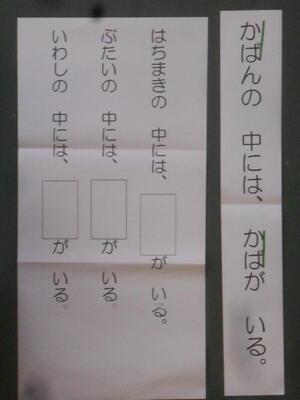 かばんの 中には、かばが いる。
はちまきの 中には、 が いる。
ぶたいの 中には、 が いる。
いわしの 中には、 が いる。